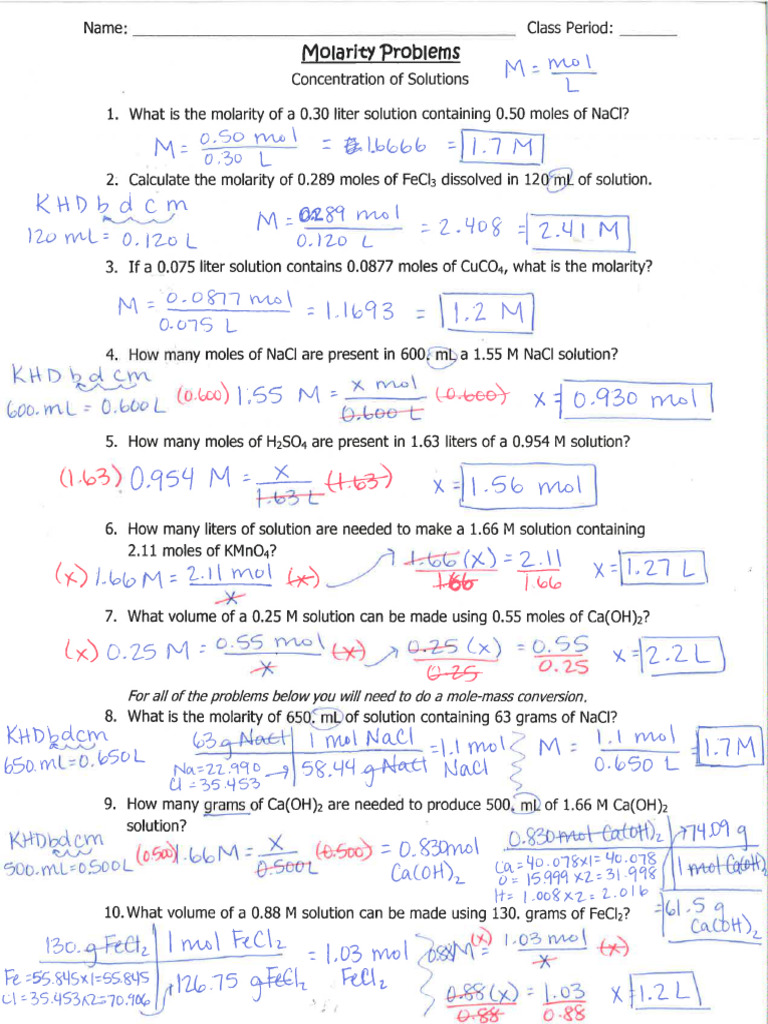 Name: ______ Class Period: ______
Molarity Problems
Concentration of Solutions
M = mol / L
1. What is the molarity of a 0.30 liter solution containing 0.50 moles of NaCl?
M = 0.50 mol / 0.30 L = 1.6666 = 1.7 M
2. Calculate the molarity of 0.289 moles of FeCl₃ dissolved in 120 mL of solution.
KHD b d c m
120 mL = 0.120 L
M = 0.289 mol / 0.120 L = 2.408 = 2.41 M
3. If a 0.075 liter solution contains 0.0877 moles of CuCO₄, what is the molarity?
M = 0.0877 mol / 0.075 L = 1.1693 = 1.2 M
4. How many moles of NaCl are present in 600. mL a 1.55 M NaCl solution?
KHD b d c m
600. mL = 0.600 L
(0.600) 1.55 M = x mol / 0.600 L (0.600) x = 0.930 mol
5. How many moles of H₂SO₄ are present in 1.63 liters of a 0.954 M solution?
(1.63) 0.954 M = x / 1.63 L (1.63) x = 1.56 mol
6. How many liters of solution are needed to make a 1.66 M solution containing
2.11 moles of KMnO₄?
(x) 1.66 M = 2.11 mol / x (x) 1.66 (x) / 1.66 = 2.11 / 1.66 x = 1.27 L
7. What volume of a 0.25 M solution can be made using 0.55 moles of Ca(OH)₂?
(x) 0.25 M = 0.55 mol / x (x) 0.25 (x) / 0.25 = 0.55 / 0.25 x = 2.2 L
For all of the problems below you will need to do a mole-mass conversion.
8. What is the molarity of 650. mL of solution containing 63 grams of NaCl?
KHD b d c m
650. mL = 0.650 L
63 g NaCl | 1 mol NaCl
58.44 g NaCl
= 1.1 mol NaCl
Na = 22.990
Cl = 35.453
M = 1.1 mol / 0.650 L = 1.7 M
9. How many grams of Ca(OH)₂ are needed to produce 500. mL of 1.66 M Ca(OH)₂
solution?
KHD b d c m
500. mL = 0.500 L
(0.500) 1.66 M = x / 0.500 L (0.500) = 0.830 mol Ca(OH)₂
0.830 mol Ca(OH)₂ | 74.09 g
1 mol Ca(OH)₂
Ca = 40.078 x 1 = 40.078
O = 15.999 x 2 = 31.998
H = 1.008 x 2 = 2.016
= 61.5 g Ca(OH)₂
10. What volume of a 0.88 M solution can be made using 130. grams of FeCl₂?
130. g FeCl₂ | 1 mol FeCl₂
126.75 g FeCl₂
= 1.03 mol FeCl₂
Fe = 55.845 x 1 = 55.845
Cl = 35.453 x 2 = 70.906
(x) 0.88 M = 1.03 mol / x (x)
0.88 (x) / 0.88 = 1.03 / 0.88 x = 1.2 L